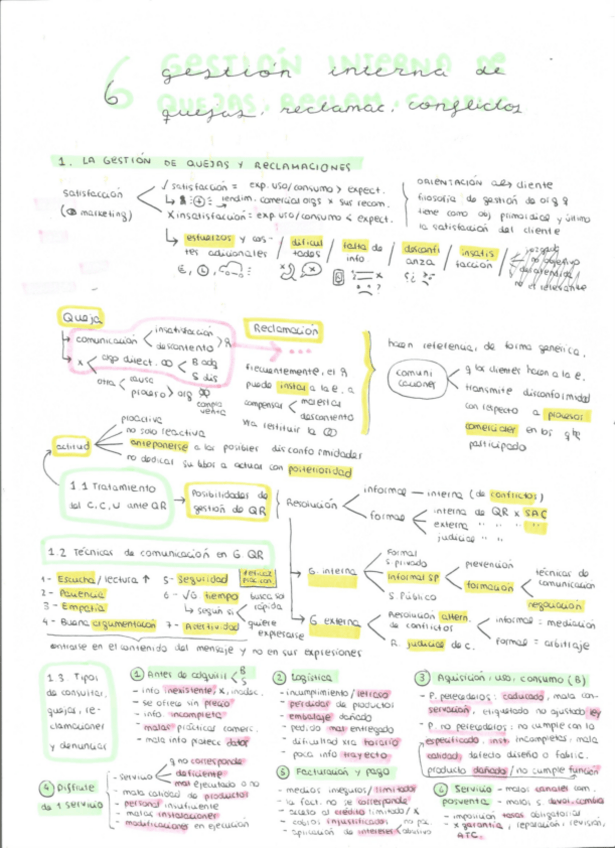 6 gestión interna de
quejas, reclamac. conflictos
1. LA GESTIÓN DE QUEJAS Y RECLAMACIONES
satisfacción
(marketing)
satisfacción = exp. uso/consumo > expect.
rendim. comercial orgs x sus recom.
X insatisfacción = exp uso/consumo < expect.
ORIENTACIÓN al cliente
filosofía de gestión de org q
tiene como obj primordial y último
la satisfacción del cliente
esfuerzos y cos-
tes adicionales / dificul
tades / falta de
info. / desconfi
anza / insatis
facción
no objetivo
no el relevante
Queja
comunicación < insatisfacción
descontento
Reclamación
x < algo direct.
otra < causa
proceso > org
compra
venta
frecuentemente, el
puede instar a la e. a
compensar < molestias
descontento
y/o restituir la
hacen referencia, de forma genérica,
comuni
caciones
q los clientes hacen a la e.
transmite disconformidad
con respecto a procesos
comerciales en los q he
participado
actitud
proactiva
no solo reactiva
anteponerse a las posibles disconformidades
no dedicar su labos a actuar con posterioridad
1.1 Tratamiento
del C, C, U ante QR
Posibilidades de
gestión de QR
Resolución
informal — interna (de conflictos)
formal < interna de QR x SAC
externa " " "
judicial " "
1.2 Técnicas de comunicación en G QR
1- Escucha / lectura ↑
2- Paciencia
3- Empatía
4- Buena argumentación
5- Seguridad
6- V/G tiempo
según si < busca so
rápida
quiere
expresarse
7- Asertividad
centrarse en el contenido del mensaje y no en sus expresiones
G. interna
Formal
S. privado
Informal SP
S. Público
prevención
formación
técnicas de
comunicación
negociación
G externa
Resolución altern.
de conflictos
informal = mediación
formal = arbitraje
R. judicial de C.
1.3. Tipos
de consultas,
quejas, re-
clamaciones
y denuncias
1 Antes de adquirir < B
S
- info inexistente, x, inadec.
- se ofrece sin precio
- info. incompleta
- malas prácticas comerc.
- mala info protecc datos
2 Logística
- incumplimiento / retraso
- pérdidas de productos
- embalaje dañado
- pedido mas entregado
- dificultad xra horario
- poca info trayecto
3 Aquisición, uso, consumo (B)
- P. perecederos: caducado, mala con-
servación, etiquetado no ajustado ley
- P. no perecederos: no cumple con lo
especificado, inst. incompletas, mala
calidad, defecto diseño o fabric.
producto dañado / no cumple función
4 Disfrute
de 1 servicio
- servicio < q no corresponde
deficiente
mas ejecutado o no
- mala calidad de productos
- personal insuficiente
- malas instalaciones
- modificaciones en ejecución
5 Facturación y pago
- medios ineguros / limitados
- la fact. no se corresponde
- acceso al crédito limitado / x
- cobros injustificados
- aplicación de intereses abusivo
6 Servicio
posventa
- malos canales com.
- malos s. devol. cambio
- imposición tasas obligatorias
- x garantía, reparación, revisión,
ATC.